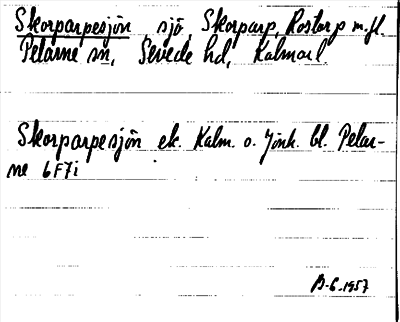 Skorparpesjön, sjö, Skorparp, Rostorp m.fl.
Pelarne sn, Sevede hd, Kalmar l.
Skorparpesjön ek. Kalm. o. Jönk. bl. Pelar-
ne 6F7i
B-6-1957